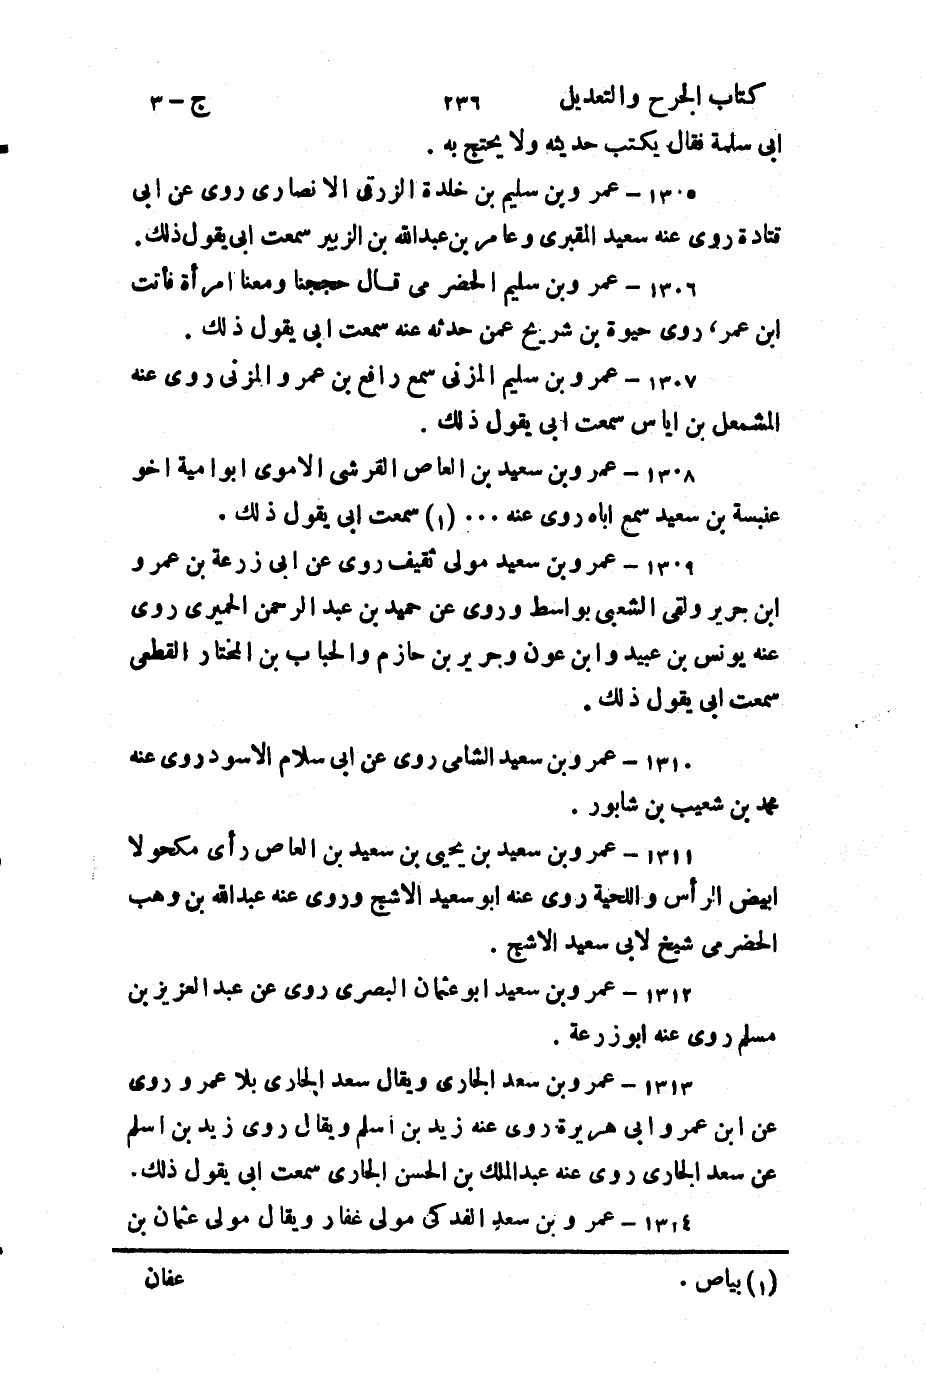 كتاب الجرح والتعديل ٢٣٦ ج - ٣
ابى سلمة فقال يكتب حديثه ولا يحتج به .
١٣٠٥ - عمرو بن سليم بن خلدة الزرقى الانصارى روى عن ابى
قتادة روى عنه سعيد المقبرى وعامر بن عبدالله بن الزبير سمعت ابى يقول ذلك .
١٣٠٦ - عمرو بن سليم الحضرمى قال حججنا ومعنا امرأة فأتت
ابن عمر، روى حيوة بن شريح عمن حدثه عنه سمعت ابى يقول ذلك .
١٣٠٧ - عمرو بن سليم المزنى سمع رافع بن عمرو المزنى روى عنه
المشمعل بن اياس سمعت ابى يقول ذلك .
١٣٠٨ - عمرو بن سعيد بن العاص القرشى الاموى ابوامية اخو
عنبسة بن سعيد سمع اباه روى عنه ... (١) سمعت ابى يقول ذلك .
١٣٠٩ - عمرو بن سعيد مولى ثقيف روى عن ابى زرعة بن عمرو
ابن جرير ولقى الشعبى بواسط وروى عن حميد بن عبد الرحمن الحميرى روى
عنه يونس بن عبيد وابن عون وجرير بن حازم والحباب بن المختار القطعى
سمعت ابى يقول ذلك .
١٣١٠ - عمرو بن سعيد الشامى روى عن ابى سلام الاسود روى عنه
محمد بن شعيب بن شابور .
١٣١١ - عمرو بن سعيد بن يحيى بن سعيد بن العاص رأى مكحولا
ابيض الرأس واللحية روى عنه ابو سعيد الاشج وروى عنه عبدالله بن وهب
الحضرمى شيخ لابى سعيد الاشج .
١٣١٢ - عمرو بن سعيد ابو عثمان البصرى روى عن عبد العزيز بن
مسلم روى عنه ابوزرعة .
١٣١٣ - عمرو بن سعد الجارى ويقال سعد الجارى بلا عمرو روى
عن ابن عمر وابى هريرة روى عنه زيد بن اسلم ويقال روى زيد بن اسلم
عن سعد الجارى روى عنه عبدالملك بن الحسن الجارى سمعت ابى يقول ذلك .
١٣١٤ - عمرو بن سعد الفدكى مولى غفار ويقال مولى عثمان بن
(١) بياص . عفان